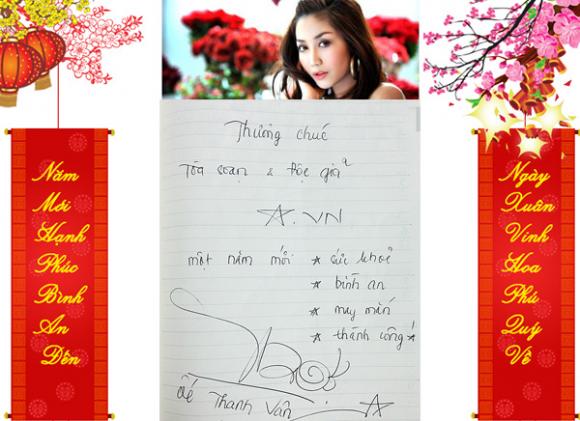 Năm
Mới
Hạnh
Phúc
Bình
An
Đến
Thương chúc
Tòa soạn & độc giả
☆.VN
một năm mới: ★ sức khoẻ
★ bình an
★ may mắn
★ thành công!
Ốc Thanh Vân
Ngày
Xuân
Vinh
Hoa
Phú
Quý
Về